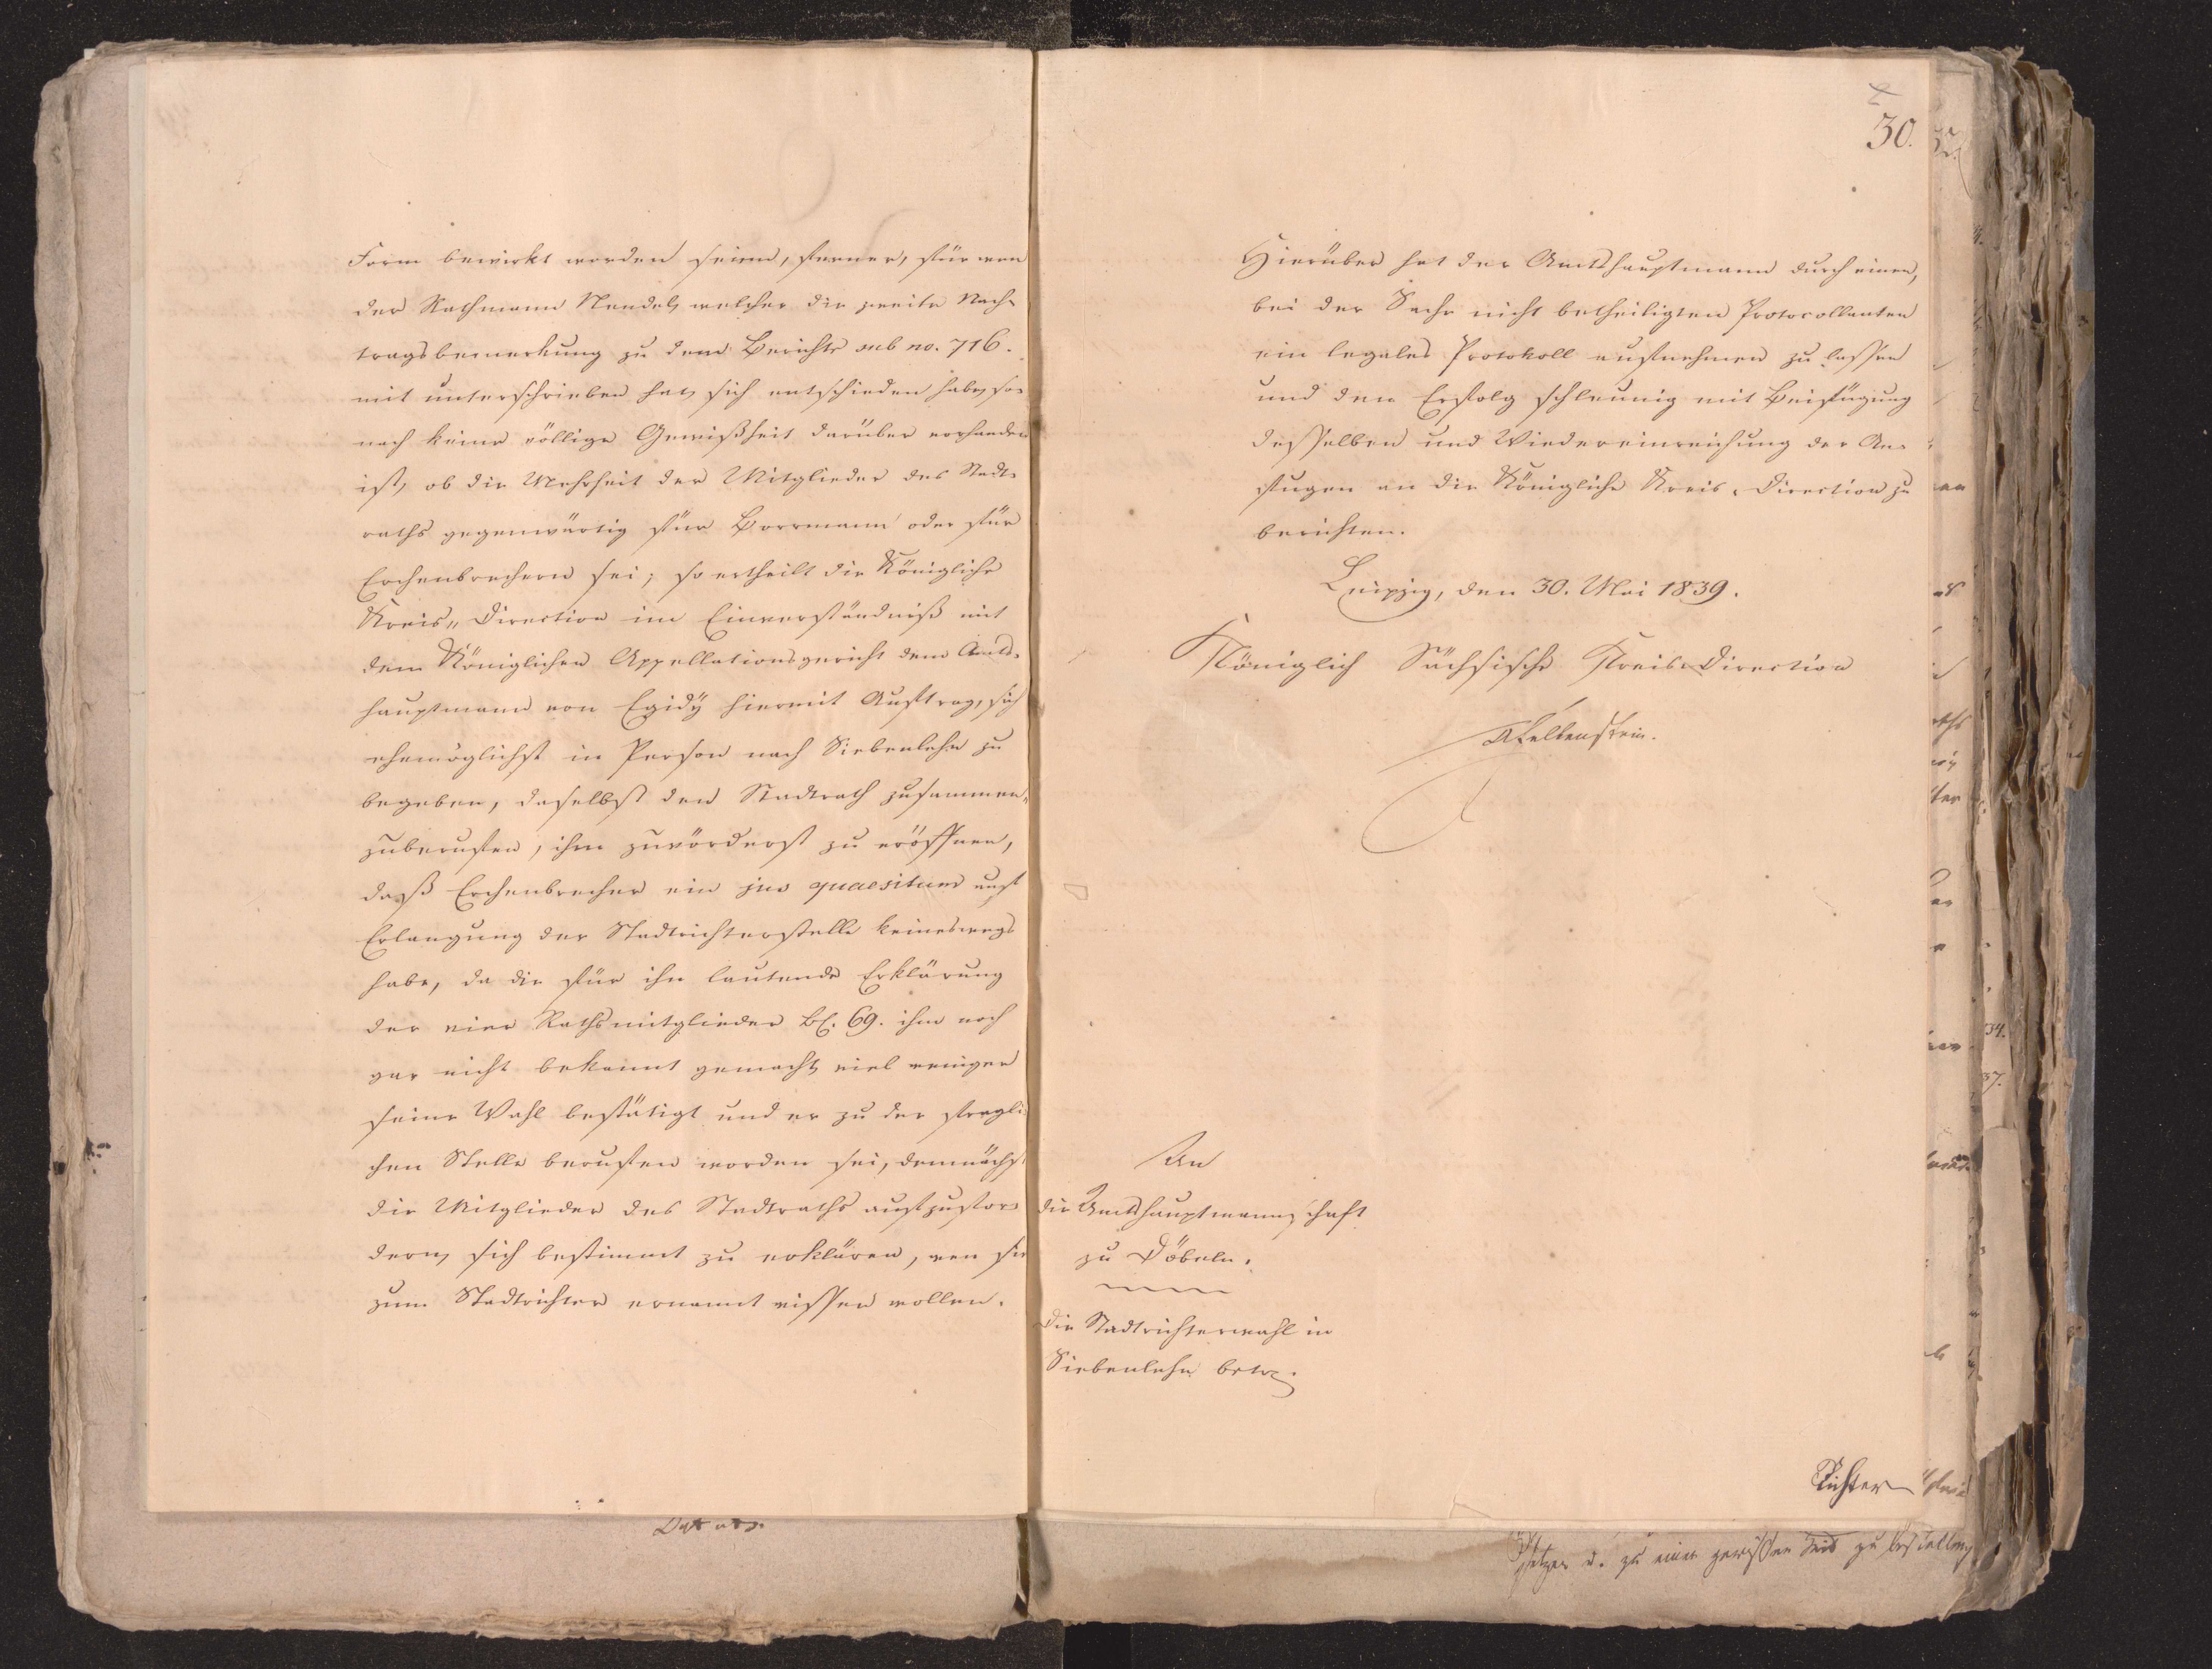 Form bewirkt worden seien, ferner, für wen
der Rathmann Mendel, welcher die zweite Nach-
tragsbemerkung zu dem Berichte sub no. 716.
mit unterschrieben hat, sich entschieden habe, so-
nach keine völlige Gewißheit darüber vorhanden
ist, ob die Mehrheit der Mitglieder des Stadt-
raths gegenwärtig für Borrmann oder für
Erchenbrechern sei; so ertheilt die Königliche
Kreis-Direction im Einverständniß mit
dem Königlichen Appellationsgericht dem Amts-
hauptmann von Egidy hiermit Auftrag, sich
ehemöglichst in Person nach Siebenlehn zu
begeben, daselbst den Stadtrath zusammen-
zuberufen, ihm zuvörderst zu eröffnen,
daß Erchenbrecher ein jus quaesitum auf
Erlangung der Stadtrichterstelle keineswegs
habe, da die für ihn lautende Erklärung
der vier Rathsmitglieder Bl. 69. ihm noch
gar nicht bekannt gemacht, viel weniger
seine Wahl bestätigt und er zu der fragli-
chen Stelle berufen worden sei, demnächst
die Mitglieder des Stadtraths aufzufor-
dern, sich bestimmt zu erklären, wen sie
zum Stadtrichter ernannt wissen wollen.
30.
Hierüber hat der Amtshauptmann durch einen,
bei der Sache nicht betheiligten Protocollanten
ein legales Protokoll aufnehmen zu lassen
und den Erfolg schleunig mit Beifügung
desselben und Wiedereinreichung der An-
fugen an die Königliche Kreis-Direction zu
berichten.
Leipzig, den 30. Mai 1839.
Königlich Sächsische Kreis-Direction
Falkenstein.
An
die Amtshauptmannschaft
zu Döbeln.
Die Stadtrichterwahl in
Siebenlehn betr.
Richter
zu einer gewissen Zeit zu bestellen